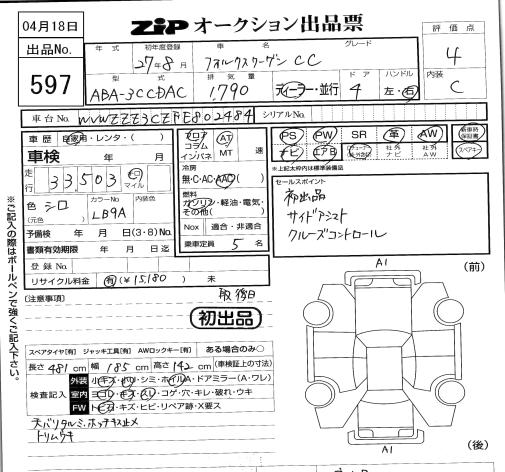 04月18日
ZIP オークション出品票
出品No.
597
年式 初年度登録 車名 グレード
27年8月 フォルクスワーゲン CC
評価点
4
型式 排気量 ドア ハンドル
ABA-3CCDAC 1,790 ディーラー・並行 4 左・右
内装
C
車台No. WVWZZZ3CZFE802484 シリアルNo.
車歴 自家用・レンタ・( )
車検 年 月
走行 33503 km マイル
色 シロ (元色) カラーNo. LB9A 内装色
予備検 年 月 日(3・8)No.
書類有効期限 年 月 日迄
登録No.
リサイクル料金 有(¥15180) 未
フロア コラム インパネ AT MT 速
冷房
無・C・AC・AAC( )
燃料
ガソリン・軽油・電気・その他( )
Nox 適合・非適合
乗車定員 5 名
PS PW SR 革 AW 新車時保証書
ナビ エアB 社外ナビ 社外AW スペアキー
※上記太枠内は標準装備品
セールスポイント
初出品
サイドアシスト
クルーズコントロール
※ご記入の際はボールペンで強くご記入下さい。
(注意事項) 取後日
初出品
スペアタイヤ[有] ジャッキ工具[有] AWロックキー[有] ある場合のみ○
長さ 481 cm 幅 185 cm 高さ 142 cm (車検証上の寸法)
検査記入
外装 小キズ・小凹・シミ・ホイルA・ドアミラー(A・ワレ)
室内 ヨゴレ・キズ・スレ・コゲ・穴・キレ・破れ・ウキ
FW トビ石・キズ・ヒビ・リペア跡・X要ス
天バリタルミ、ホッチキス止メ
トリムウキ
A1
(前)
A1
(後)